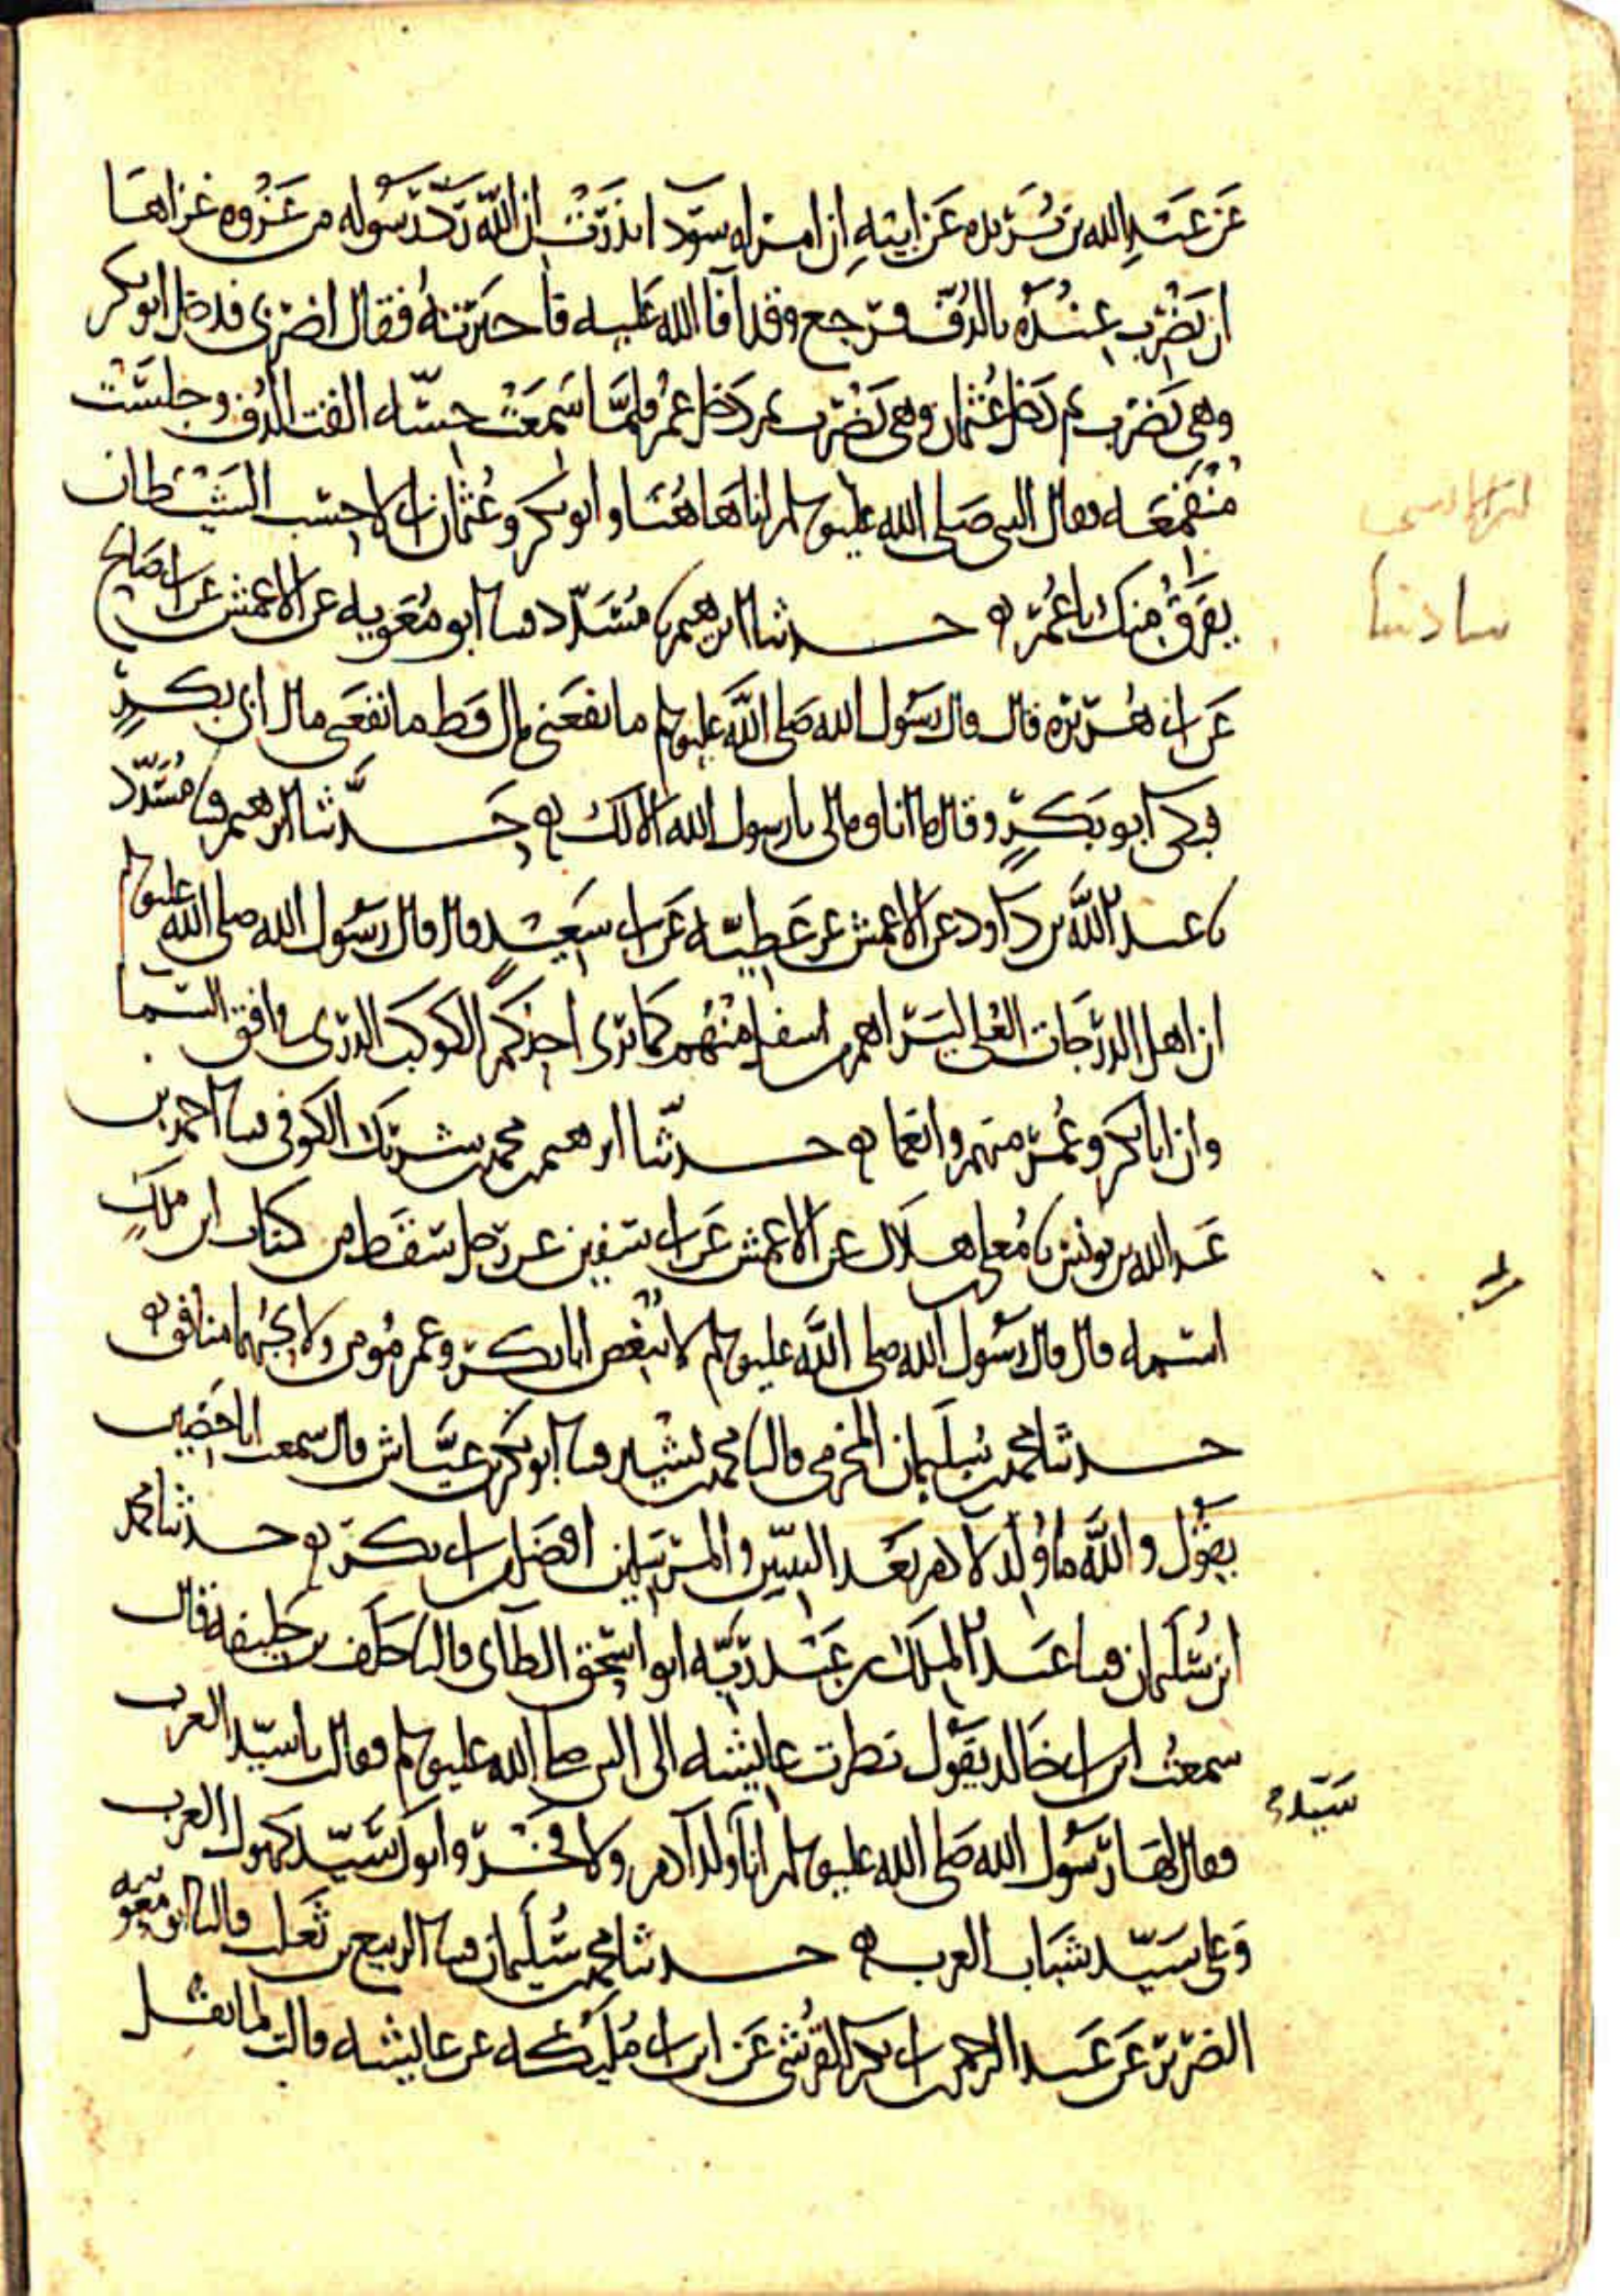 عن عبد الله بن بريده عن ابيه ان امراه سودا نذرت ان الله رد رسوله من غزوه غزاها
ان تضرب عنده بالدف فرجع وقد افا الله عليه فاخبرته فقال اضربي فدخل ابو بكر
وهي تضرب ثم دخل عثمان وهي تضرب ثم دخل عمر فلما سمعت حسه القت الدف وجلست
منقمعه فقال النبي صلى الله عليه وسلم انا هاهنا وابو بكر وعثمان اني لاحسب الشيطان
يفرق منك يا عمر ه حدثنا ابرهيم نا مسدد نسا ابو معويه عن الاعمش عن ابي صالح
عن ابي هريره قال قال رسول الله صلى الله عليه وسلم ما نفعني مال قط ما نفعني مال ابي بكر
فبكى ابو بكر وقال ما انا ومالي يا رسول الله الا لك ه حدثنا ابرهيم نسا مسدد
نا عبد الله بن داود عن الاعمش عن عطيه عن ابي سعيد قال قال رسول الله صلى الله عليه وسلم
ان اهل الدرجات العلى ليراهم من اسفل منهم كما ترى احدكم الكوكب الدري في افق السما
وان ابا بكر وعمر منهم وانعما ه حدثنا ابرهيم بن محمد بن شريك الكوفي نسا احمد بن
عبد الله بن يونس نا معلى بن هلال عن الاعمش عن ابي سفين عن رجل سقط من كتاب ابن ملك
اسمه قال قال رسول الله صلى الله عليه وسلم لا يبغض ابا بكر وعمر مومن ولا يحبهما منافق ه
حدثنا محمد بن سليمان المخرمي قال نا محمد بن بشير نسا ابو بكر بن عياش قال سمعت ابا حصين
يقول والله ما ولد لادم بعد النبيين والمرسلين افضل من ابي بكر ه حدثنا محمد
ابن سليمان نسا عبد الملك بن عبد ربه ابو اسحق الطاي قال نا خلف بن خليفه قال
سمعت ابن ابي خالد يقول نظرت عايشه الى النبي صلى الله عليه وسلم فقالت يا سيد العرب
سيد
فقال لها رسول الله صلى الله عليه وسلم انا ولد ادم ولا فخر وابوك سيد كهول العرب
وعلي سيد شباب العرب ه حدثنا محمد بن سليمان نسا الربيع بن ثعلب قال نا ابو معويه
الضرير عن عبد الرحمن بن ابي بكر القرشي عن ابن ابي مليكه عن عايشه قالت لما ثقل